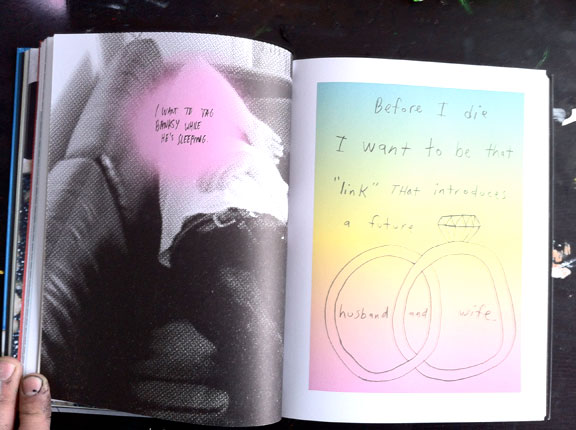 I WANT TO TAG
BANKSY WHILE
HE'S SLEEPING.
Before I die
I want to be that
"link" THat introduces
a future
husband and wife.